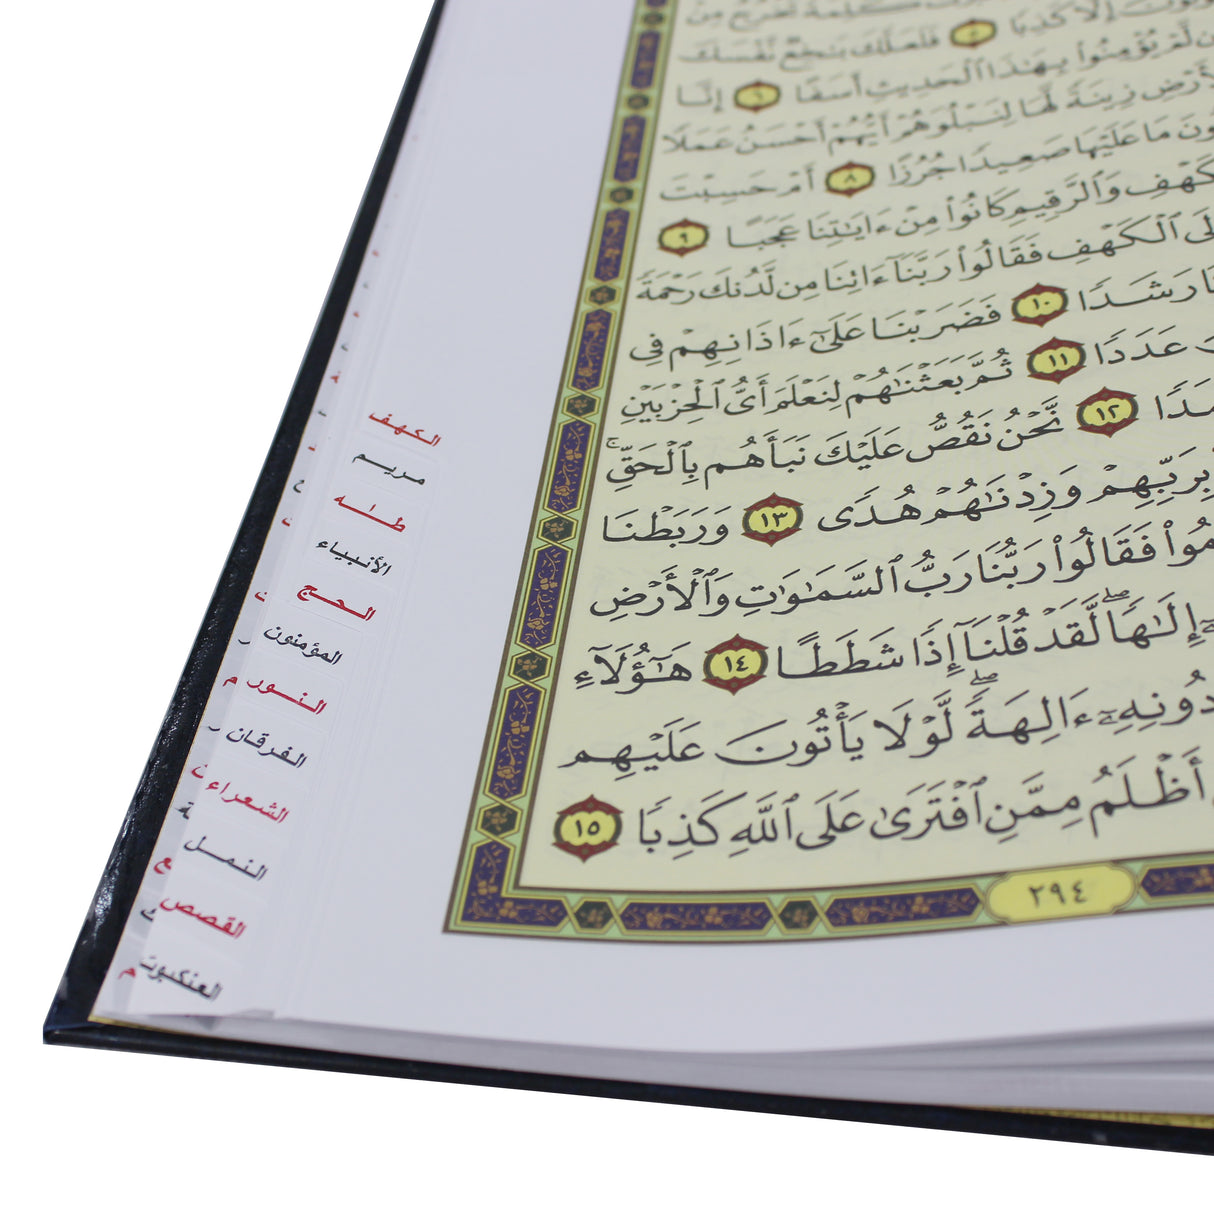 كلمة تخرج من
إلا كذبا ٥ فلعلك بخع نفسك
لم يؤمنوا بهذا الحديث أسفا ٦ إنا
زينة لها لنبلوهم أيهم أحسن عملا
ما عليها صعيدا جرزا ٨ أم حسبت
والرقيم كانوا من ءايتنا عجبا ٩
الكهف فقالوا ربنا ءاتنا من لدنك رحمة
رشدا ١٠ فضربنا على ءاذانهم في
عددا ١١ ثم بعثنهم لنعلم أي الحزبين
١٢ نحن نقص عليك نبأهم بالحق
بربهم وزدنهم هدى ١٣ وربطنا
فقالوا ربنا رب السموت والأرض
إلها لقد قلنا إذا شططا ١٤ هؤلاء
دونه ءالهة لولا يأتون عليهم
أظلم ممن افترى على الله كذبا ١٥
٢٩٤
الكهف
مريم
طه
الأنبياء
الحج
المؤمنون
النور
الفرقان
الشعراء
النمل
القصص
العنكبوت